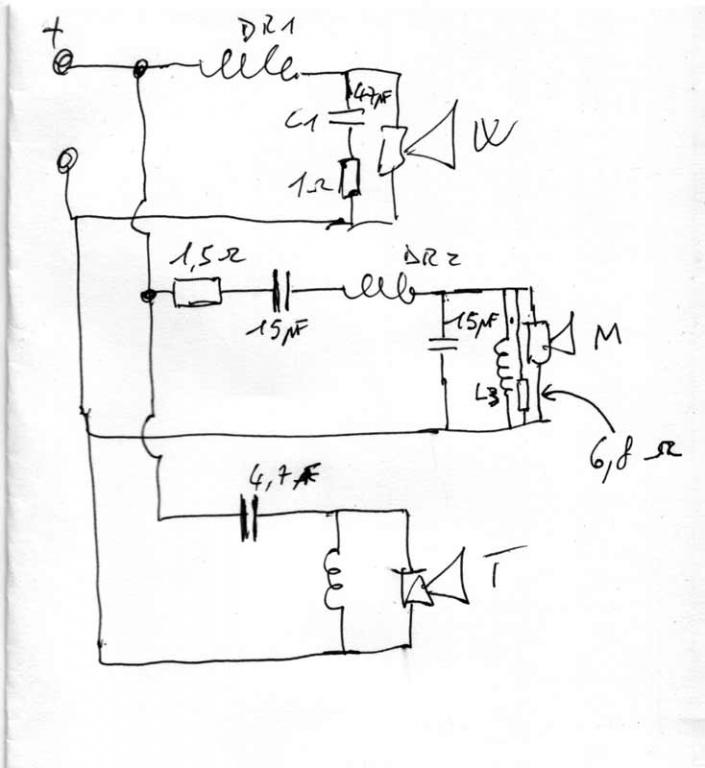 + DR1
47µF
C1
W
1Ω
1,5Ω
DR2
15µF
15µF
M
L3
6,8 Ω
4,7µF
T